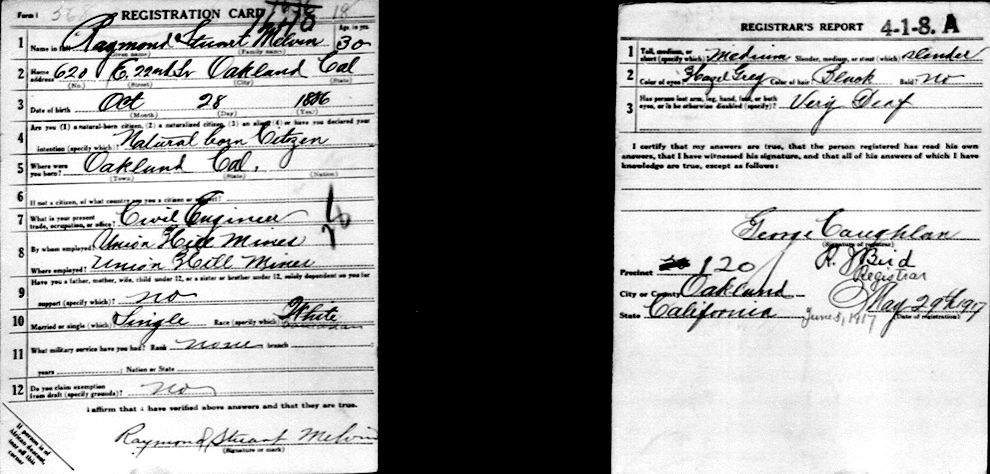 Form 1 REGISTRATION CARD
1 Name in full Raymond Stuart Melvin Age, in yrs. 30
(Given name) (Family name)
2 Home address 620 E. 22nd St Oakland Cal
(No.) (Street) (City) (State)
3 Date of birth Oct 28 1886
(Month) (Day) (Year)
Are you (1) a natural-born citizen, (2) a naturalized citizen, (3) an alien, (4) or have you declared your
4 intention (specify which)? Natural born Citizen
5 Where were you born? Oakland Cal.
(Town) (State) (Nation)
6 If not a citizen, of what country are you a citizen or subject?
7 What is your present trade, occupation, or office? Civil Engineer
8 By whom employed? Union Hill Mines
Where employed? Union Hill Mines
9 Have you a father, mother, wife, child under 12, or a sister or brother under 12, solely dependent on you for
support (specify which)? no
10 Married or single (which)? Single Race (specify which)? White
11 What military service have you had? Rank none branch
years ; Nation or State
12 Do you claim exemption from draft (specify grounds)? no
I affirm that I have verified above answers and that they are true.
Raymond Stuart Melvin
(Signature or mark)
If person is of
African descent,
tear off this
corner
REGISTRAR'S REPORT 4-1-8. A
1 Tall, medium, or short (specify which)? Medium Slender, medium, or stout (which)? slender
2 Color of eyes? Hazel Grey Color of hair? Black Bald? No
3 Has person lost arm, leg, hand, foot, or both eyes, or is he otherwise disabled (specify)? Very Deaf
I certify that my answers are true, that the person registered has read his own
answers, that I have witnessed his signature, and that all of his answers of which I have
knowledge are true, except as follows:
George Caughlan
(Signature of registrar)
R. J. Bird
Registrar
Precinct 120
City or County Oakland
May 29th 1917
State California June 5, 1917 (Date of registration)